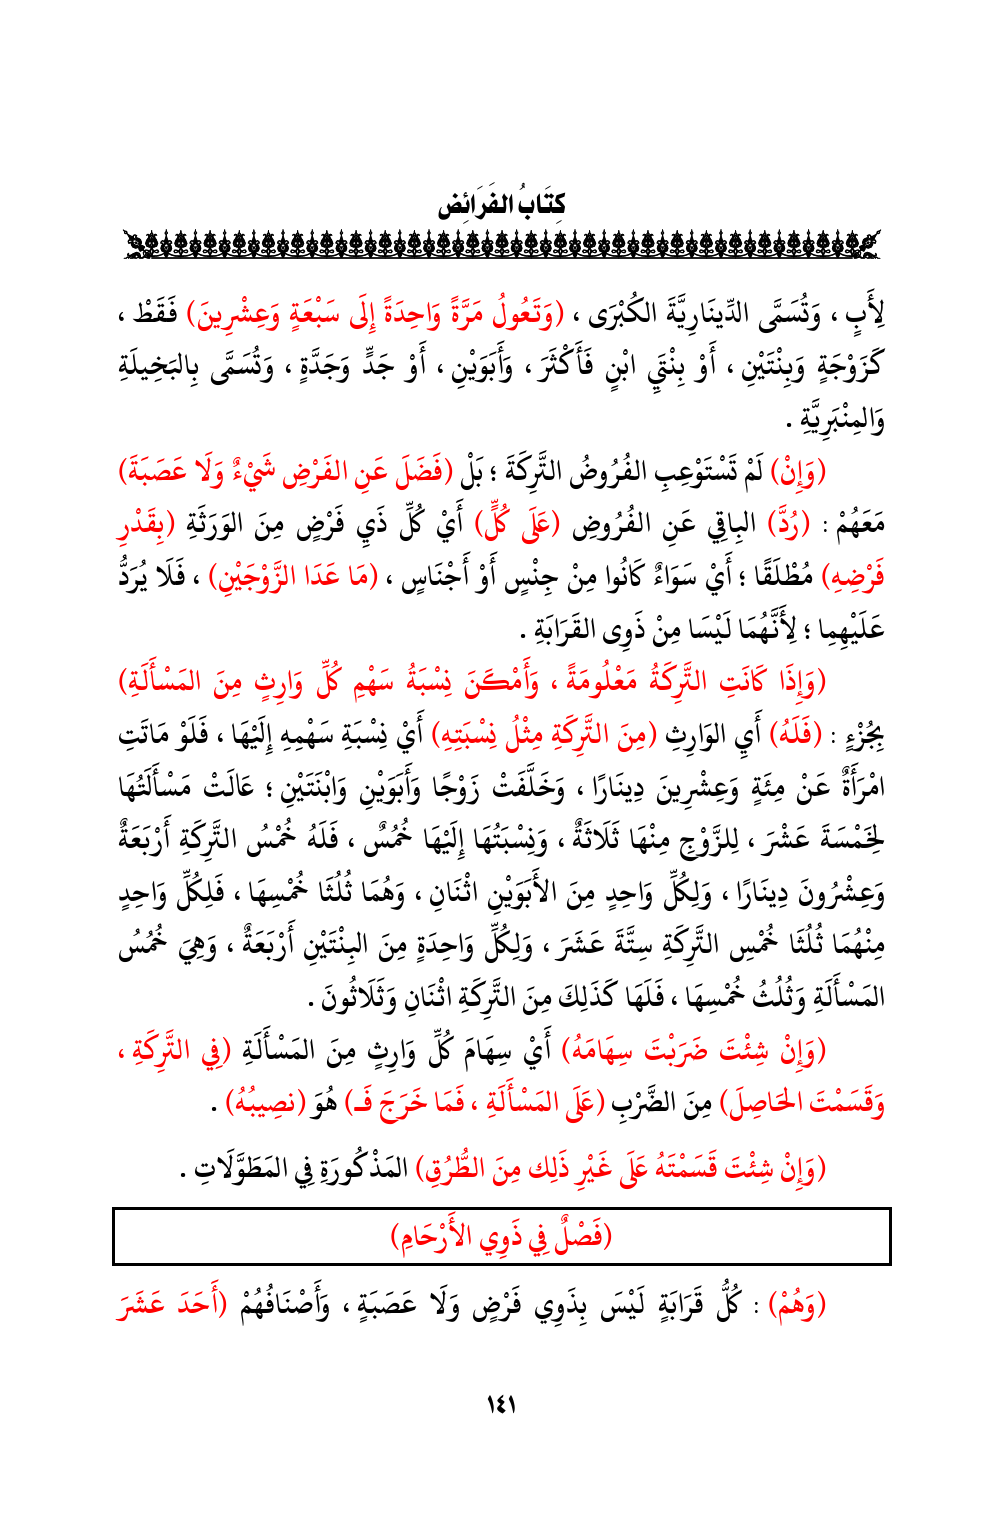 كِتَابُ الفَرَائِض
لِأَبٍ ، وَتُسَمَّى الدِّينَارِيَّةَ الكُبْرَى ، (وَتَعُولُ مَرَّةً وَاحِدَةً إِلَى سَبْعَةٍ وَعِشْرِينَ) فَقَطْ ،
كَزَوْجَةٍ وَبِنْتَيْنِ ، أَوْ بِنْتَيِ ابْنٍ فَأَكْثَرَ ، وَأَبَوَيْنِ ، أَوْ جَدٍّ وَجَدَّةٍ ، وَتُسَمَّى بِالبَخِيلَةِ
وَالمِنْبَرِيَّةِ .
(وَإِنْ) لَمْ تَسْتَوْعِبِ الفُرُوضُ التَّرِكَةَ ؛ بَلْ (فَضَلَ عَنِ الفَرْضِ شَيْءٌ وَلَا عَصَبَةَ)
مَعَهُمْ : (رُدَّ) البِاقِي عَنِ الفُرُوضِ (عَلَى كُلٍّ) أَيْ كُلِّ ذَيِ فَرْضٍ مِنَ الوَرَثَةِ (بِقَدْرِ
فَرْضِهِ) مُطْلَقًا ؛ أَيْ سَوَاءٌ كَانُوا مِنْ جِنْسٍ أَوْ أَجْنَاسٍ ، (مَا عَدَا الزَّوْجَيْنِ) ، فَلَا يُرَدُّ
عَلَيْهِما ؛ لِأَنَّهُمَا لَيْسَا مِنْ ذَوِى القَرَابَةِ .
(وَإِذَا كَانَتِ التَّرِكَةُ مَعْلُومَةً ، وَأَمْكَنَ نِسْبَةُ سَهْمِ كُلِّ وَارِثٍ مِنَ المَسْأَلَةِ)
بِجُزْءٍ : (فَلَهُ) أَيِ الوَارِثِ (مِنَ التَّرِكَةِ مِثْلُ نِسْبَتِهِ) أَيْ نِسْبَةِ سَهْمِهِ إِلَيْهَا ، فَلَوْ مَاتَتِ
امْرَأَةٌ عَنْ مِئَةٍ وَعِشْرِينَ دِينَارًا ، وَخَلَّفَتْ زَوْجًا وَأَبَوَيْنِ وَابْنَتَيْنِ ؛ عَالَتْ مَسْأَلَتُهَا
لِخَمْسَةَ عَشْرَ ، لِلزَّوْجِ مِنْهَا ثَلَاثَةٌ ، وَنِسْبَتُهَا إِلَيْهَا خُمُسٌ ، فَلَهُ خُمْسُ التَّرِكَةِ أَرْبَعَةٌ
وَعِشْرُونَ دِينَارًا ، وَلِكُلِّ وَاحِدٍ مِنَ الأَبَوَيْنِ اثْنَانِ ، وَهُمَا ثُلُثَا خُمْسِهَا ، فَلِكُلِّ وَاحِدٍ
مِنْهُمَا ثُلُثَا خُمْسِ التَّرِكَةِ سِتَّةَ عَشَرَ ، وَلِكُلِّ وَاحِدَةٍ مِنَ البِنْتَيْنِ أَرْبَعَةٌ ، وَهِيَ خُمُسُ
المَسْأَلَةِ وَثُلُثُ خُمْسِهَا ، فَلَهَا كَذَلِكَ مِنَ التَّرِكَةِ اثْنَانِ وَثَلَاثُونَ .
(وَإِنْ شِئْتَ ضَرَبْتَ سِهَامَهُ) أَيْ سِهَامَ كُلِّ وَارِثٍ مِنَ المَسْأَلَةِ (فِي التَّرِكَةِ ،
وَقَسَمْتَ الحَاصِلَ) مِنَ الضَّرْبِ (عَلَى المَسْأَلَةِ ، فَمَا خَرَجَ فَـ) هُوَ (نصِيبُهُ) .
(وَإِنْ شِئْتَ قَسَمْتَهُ عَلَى غَيْرِ ذَلِك مِنَ الطُّرُقِ) المَذْكُورَةِ فِي المَطَوَّلَاتِ .
(فَصْلٌ فِي ذَوِي الأَرْحَامِ)
(وَهُمْ) : كُلُّ قَرَابَةٍ لَيْسَ بِذَوِي فَرْضٍ وَلَا عَصَبَةٍ ، وَأَصْنَافُهُمْ (أَحَدَ عَشَرَ
١٤١